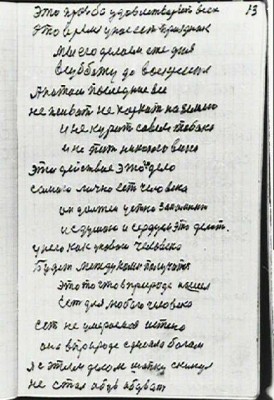 13
Это просьба удовлетворит всех
Это время унесет признак
мы его делаем сте дня
в субботу до воскресенья
А потом последние все
не плевать не харкать на землю
и не курить совсем табака
и не пить никакого вина
Эти действие это дело
самого лично есть человека
он должен четко запомнить
и душою и сердцем это делать.
у него как у такого человека
будет между нами получатся
Это то что в природе нашел
есть для любого человека
есть не умираемая истина
она в природе сделала богам
я с этим делом шапку скинул
не стал обув обуват